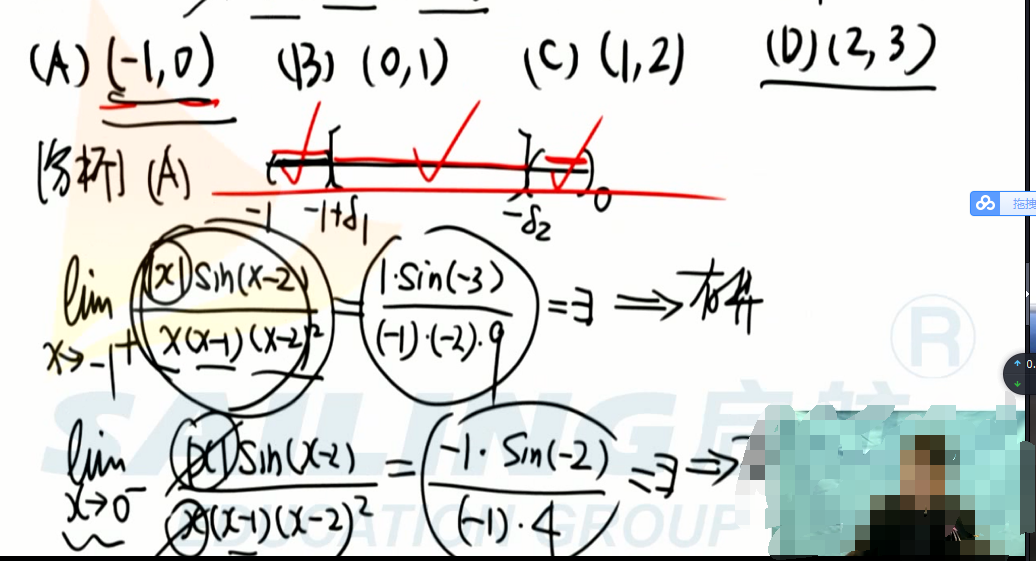 (A) (-1,0) (B) (0,1) (C) (1,2) (D) (2,3)
[分析] (A)
-1 -1+δ₁ -δ₂ 0
lim x→-1⁺ |x|sin(x-2) / x(x-1)(x-2)² = 1·sin(-3) / (-1)·(-2)·9 = ∃ ⟹ 有界
lim x→0⁻ |x|sin(x-2) / x(x-1)(x-2)² = -1·sin(-2) / (-1)·4 = ∃ ⟹
SAILING 启航 ®
EDUCATION GROUP
拖拽
0.